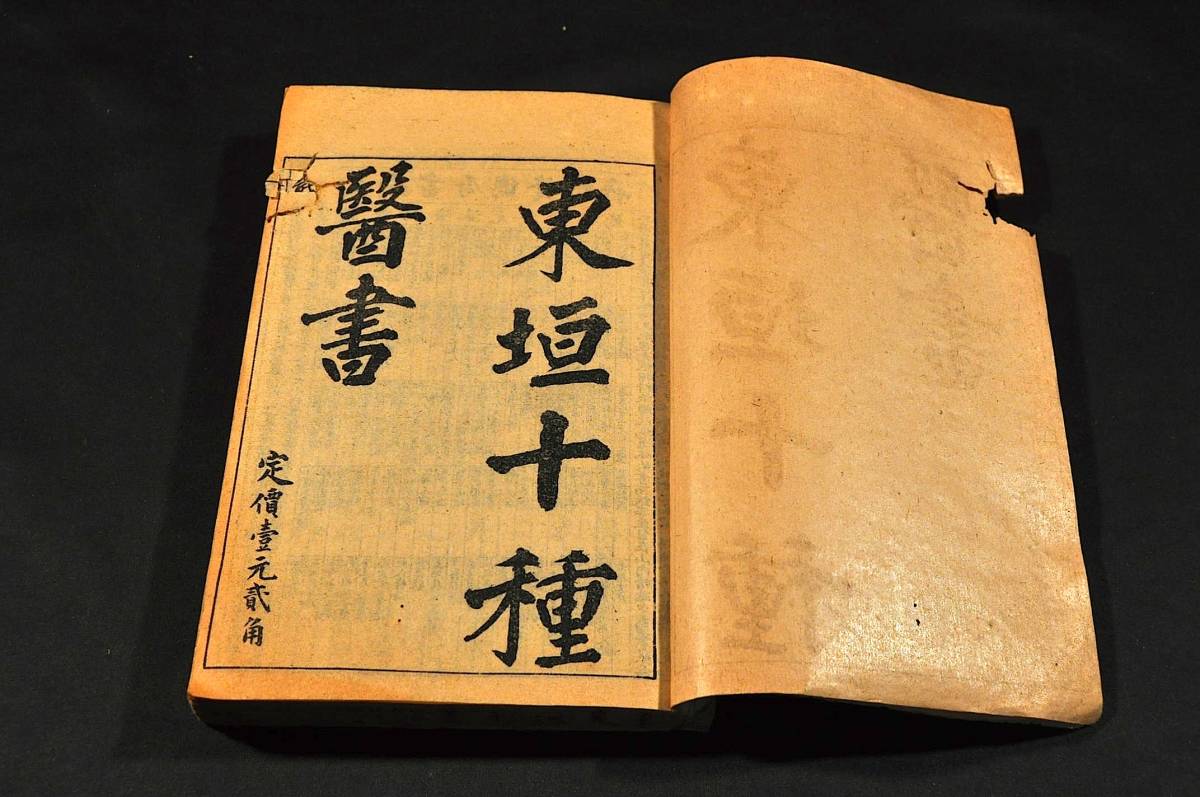 東垣十種
醫書
定價壹元貳角